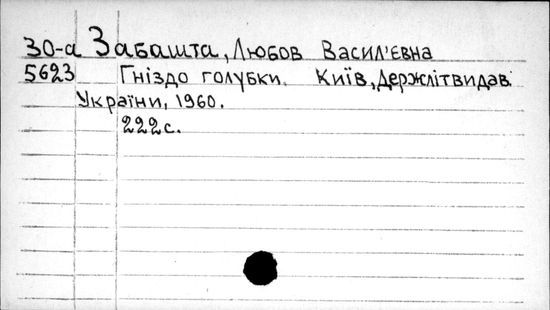 30-а Забашта, Любов Васил'євна
5623 Гніздо голубки. Київ, Держлітвидав
України, 1960.
222 с.